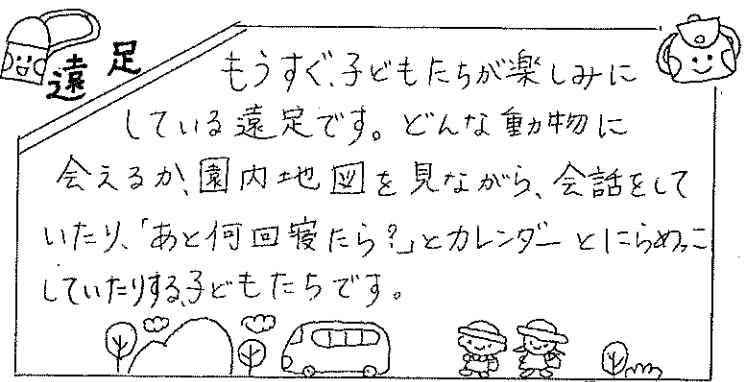 遠足
もうすぐ、子どもたちが楽しみに
している遠足です。どんな動物に
会えるか、園内地図を見ながら、会話をして
いたり、「あと何回寝たら?」とカレンダーとにらめっこ
していたりする子どもたちです。